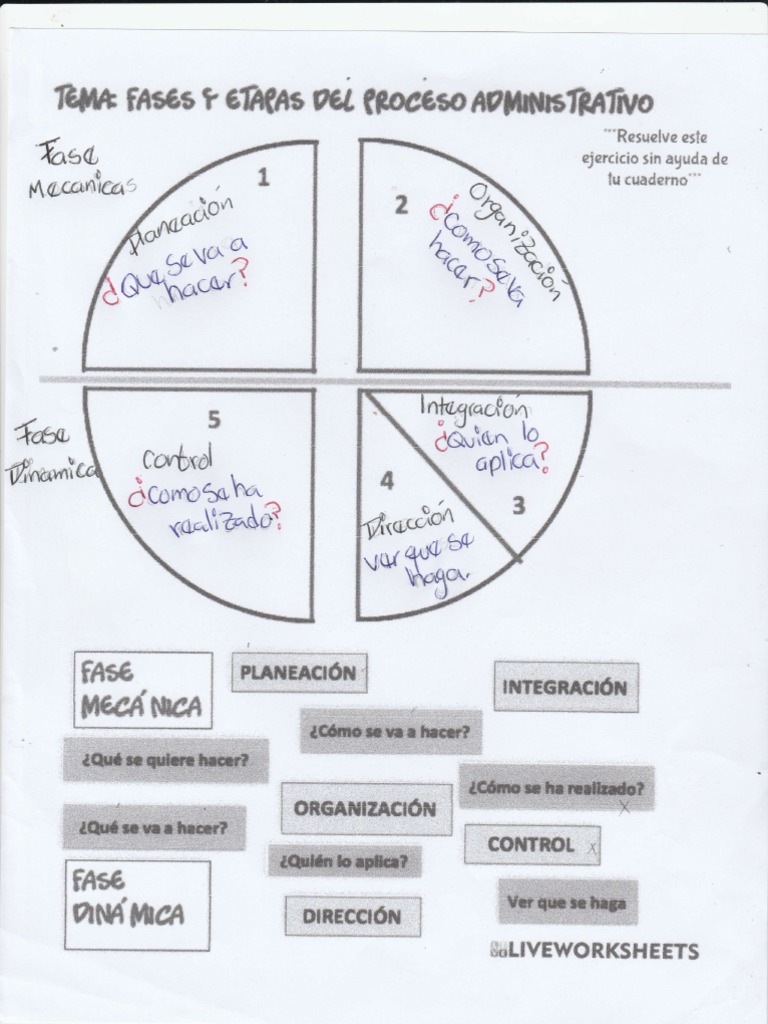 TEMA: FASES Y ETAPAS DEL PROCESO ADMINISTRATIVO
***Resuelve este
ejercicio sin ayuda de
tu cuaderno***
Fase
Mecanicas
1
Planeación
¿Que se va a
hacer?
2
Organización
¿Como se va
hacer?
Fase
Dinamica
5
Control
¿Como se ha
realizado?
Integración
¿Quien lo
aplica?
3
4
Dirección
ver que se
haga.
FASE
MECÁNICA
PLANEACIÓN
INTEGRACIÓN
¿Cómo se va a hacer?
¿Qué se quiere hacer?
¿Cómo se ha realizado?
x
ORGANIZACIÓN
¿Qué se va a hacer?
CONTROL x
¿Quién lo aplica?
FASE
DINÁMICA
Ver que se haga
DIRECCIÓN
LIVEWORKSHEETS